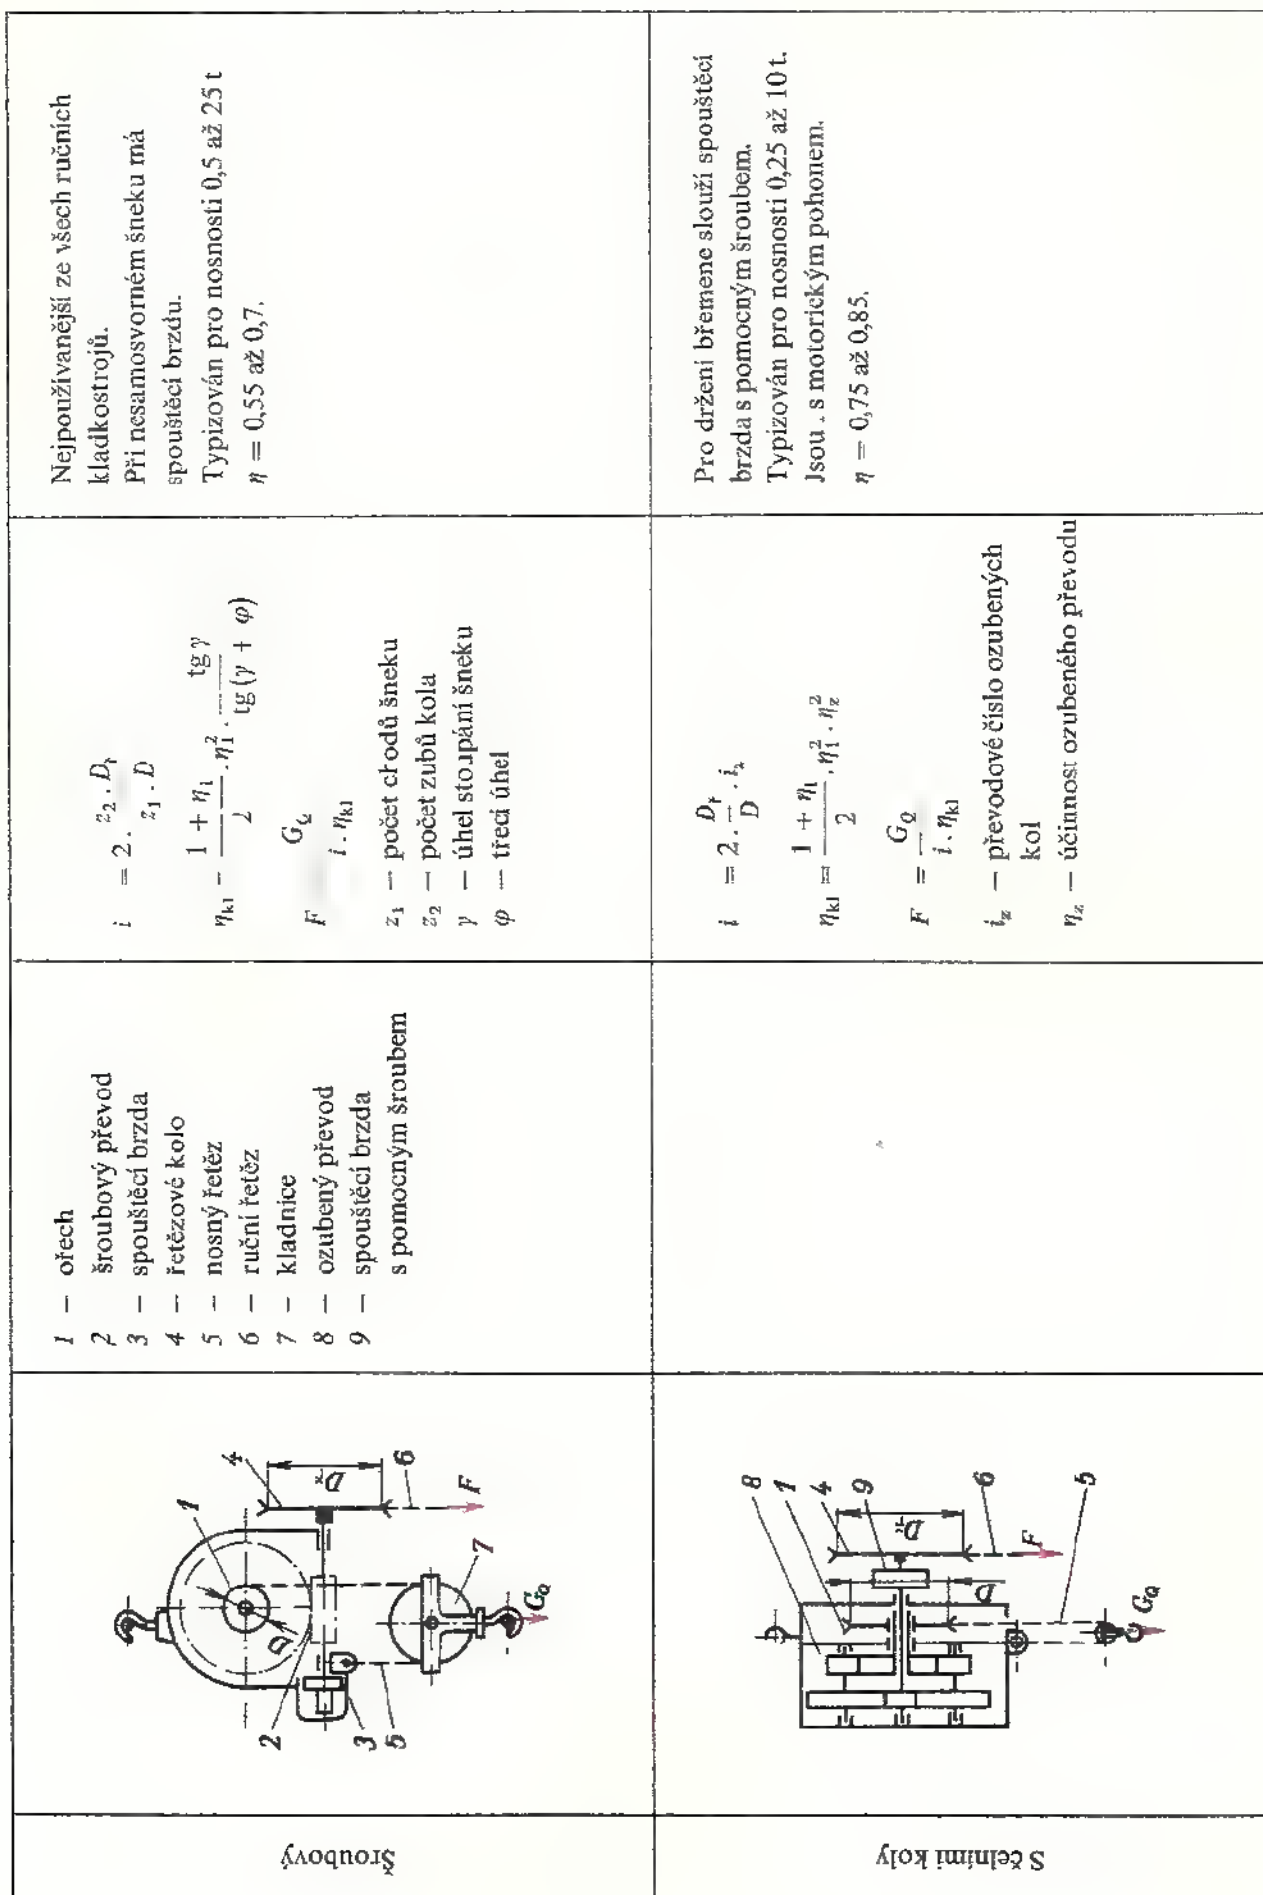 Šroubový
1
4
D_ř
6
F
2
D
3
5
7
G_Q
1 — ořech
2 šroubový převod
3 — spouštěcí brzda
4 — řetězové kolo
5 — nosný řetěz
6 — ruční řetěz
7 — kladnice
8 — ozubený převod
9 — spouštěcí brzda
s pomocným šroubem
i = 2 . z₂ . D_ř / z₁ . D
η_kl - 1 + η₁ / 2 . η₁² . tg γ / tg (γ + φ)
F G_Q / i . η_kl
z₁ — počet chodů šneku
z₂ — počet zubů kola
γ — úhel stoupání šneku
φ — třecí úhel
Nejpoužívanější ze všech ručních
kladkostrojů.
Při nesamosvorném šneku má
spouštěcí brzdu.
Typizován pro nosnosti 0,5 až 25 t
η = 0,55 až 0,7.
S čelními koly
8
1
4
9
D_ř
D
6
F
5
G_Q
i = 2 . D_ř / D . i_z
η_kl = 1 + η₁ / 2 . η₁² . η_z²
F = G_Q / i . η_kl
i_z — převodové číslo ozubených
kol
η_z — účinnost ozubeného převodu
Pro držení břemene slouží spouštěcí
brzda s pomocným šroubem.
Typizován pro nosnosti 0,25 až 10 t.
Jsou . s motorickým pohonem.
η = 0,75 až 0,85.